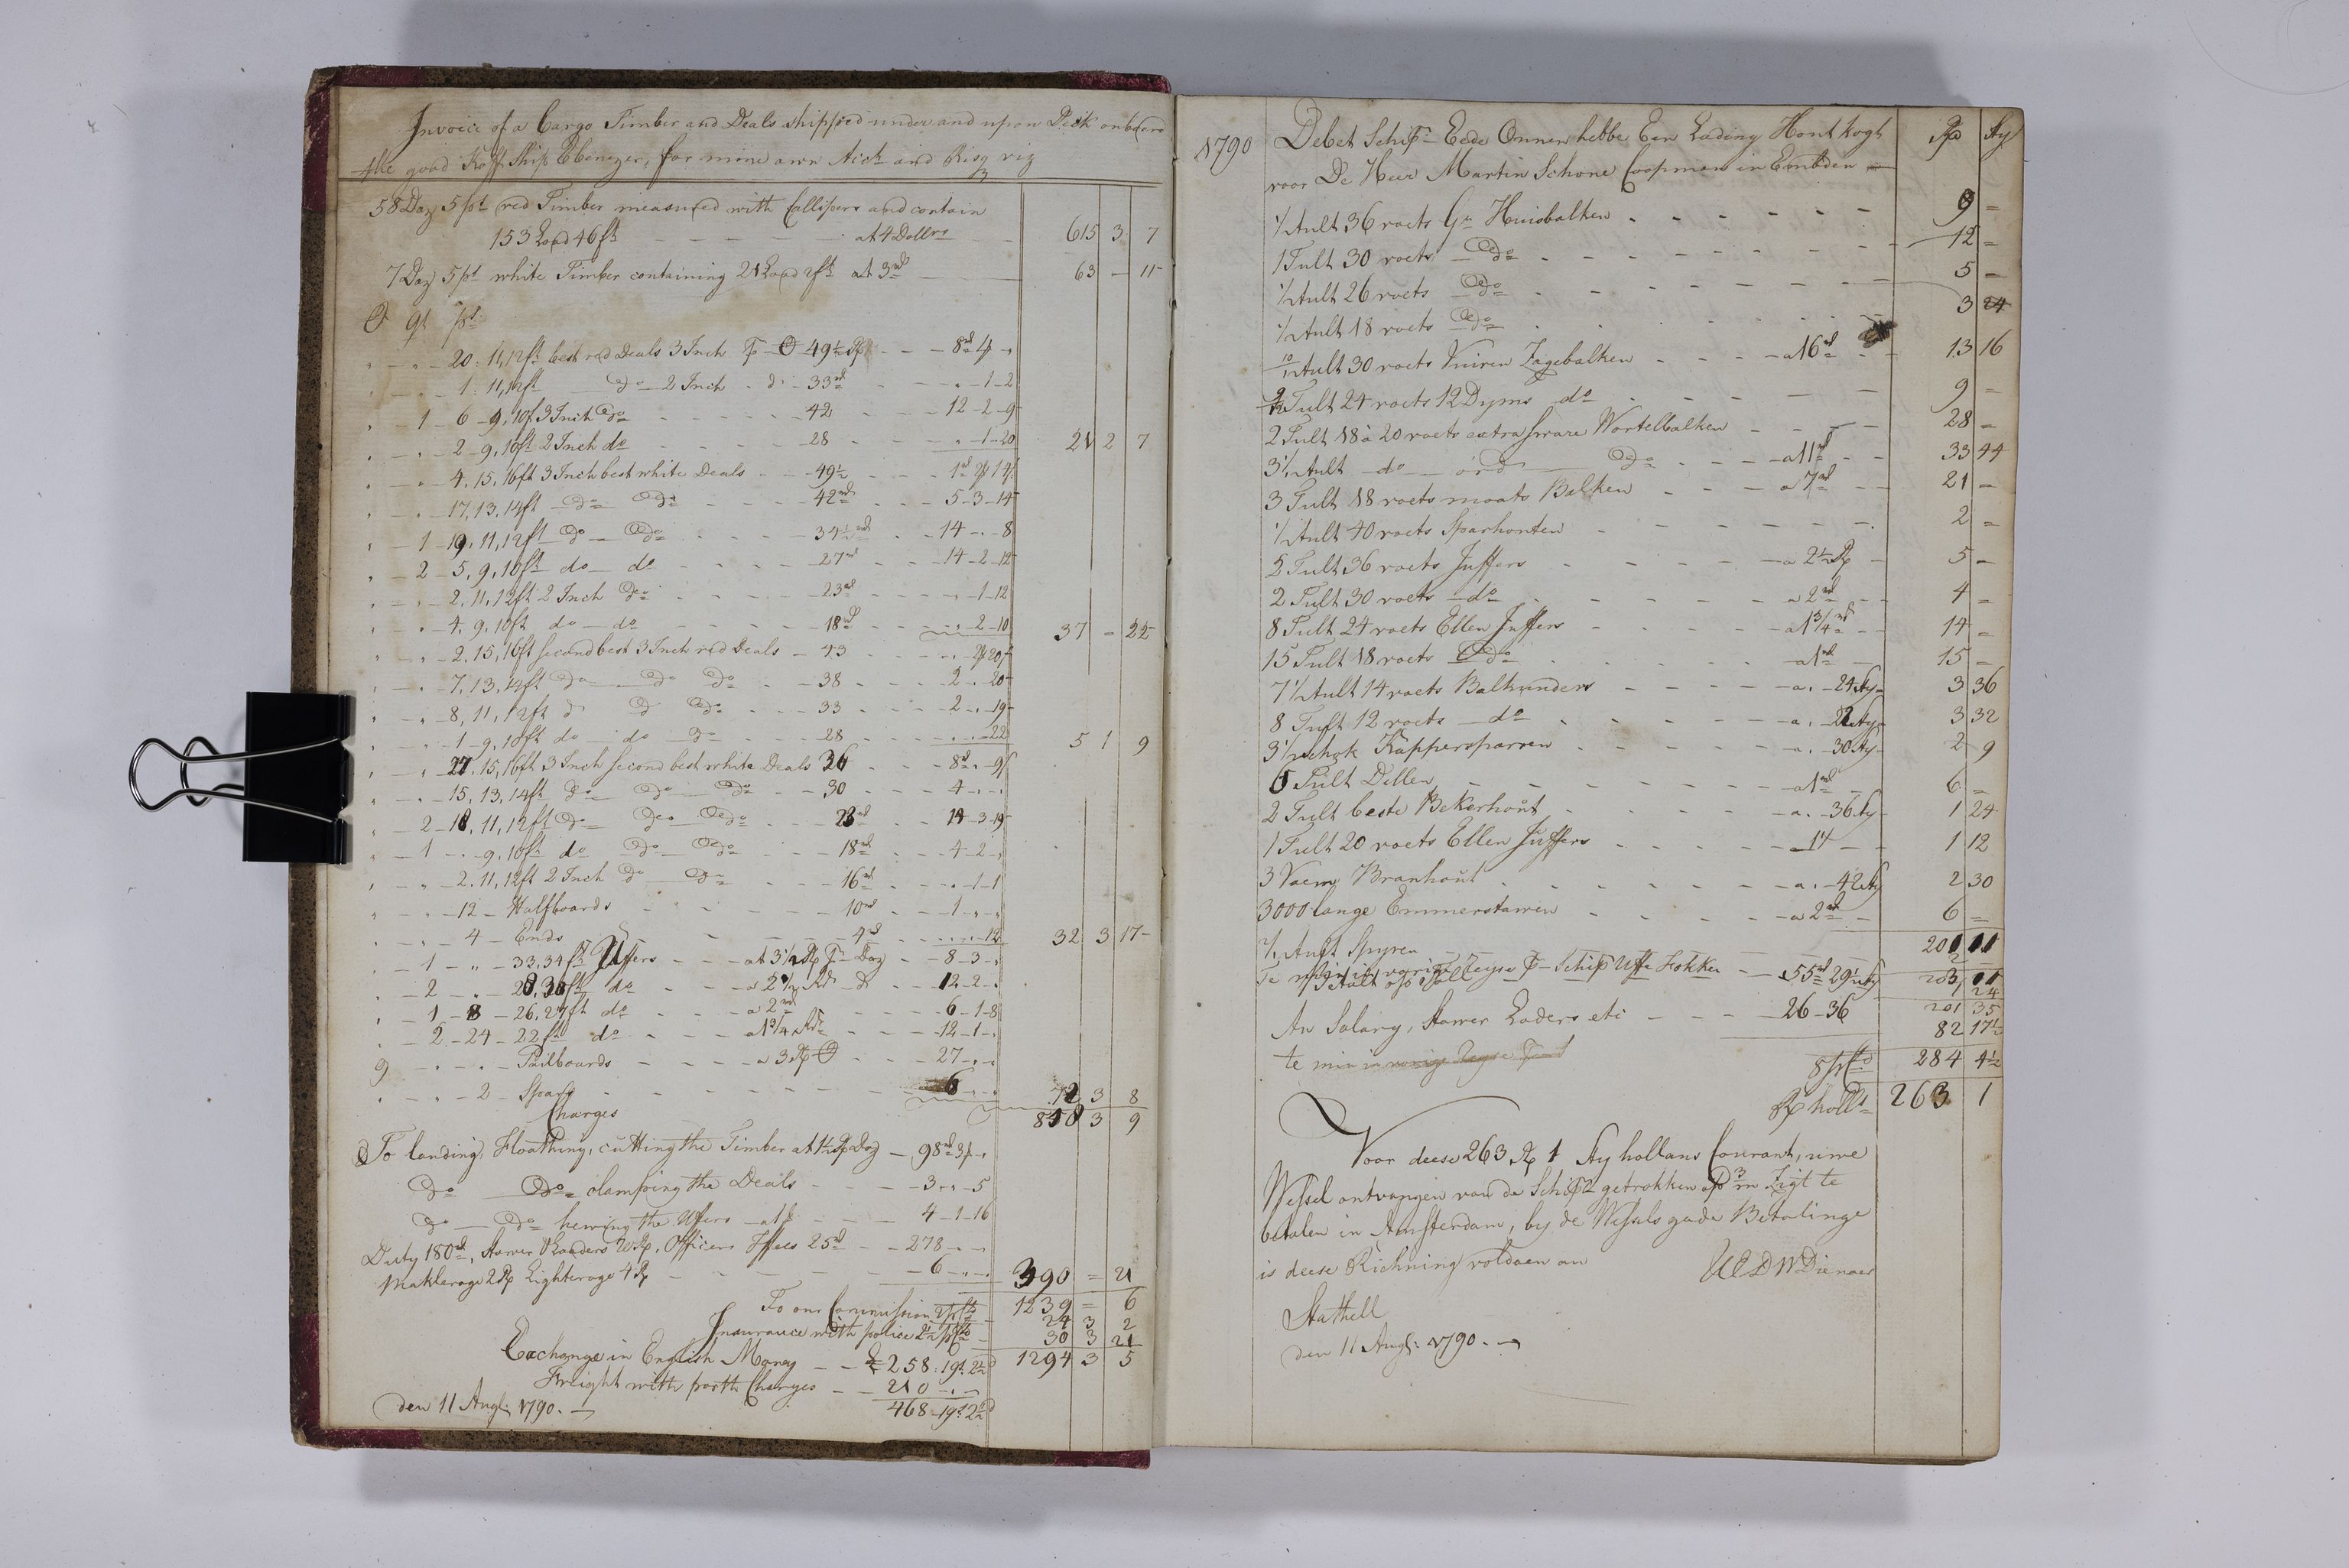 Invoice of a Cargo Timber and Deals shipped under and upon Deck onboard
the good Koff Ship Ebenezer, for mine own and Risq viz
58 Doz 5 pt red Timber measured with Callipers and contain
153 Load 46 ft - - - - at 4 Dollrs - 615 3 7
7 Doz 5 pt white Timber containing 21 Load 2 ft at 3 rd 63 - 11
qt pt
20. 11, 12 ft best red Deals 3 Inch 49½ - - 8 rd 4
1. 11, 12 ft do 2 Inch do 33 rd - - 1-2
1 6 - 9, 10 f 3 Inch do - - 42 - - 12-2-9
2 - 9, 10 ft 2 Inch do - - 28 - - 1-20 21 2 7
4. 15, 16 ft 3 Inch best white Deals - - 49½
17, 13, 14 ft do do - - 42 rd - - 5-3-14
1 19, 11, 12 ft do do - - 34½ rd - - 14-„-8
2 - 5, 9, 10 ft do do - - 27 rd - - 14-2-12
2. 11, 12 ft 2 Inch do - - 23 rd - - 1-12
4. 9, 10 ft do do - - 18 rd - - 2-10 37 - 22
2. 15, 16 ft second best 3 Inch red Deals - 43
7, 13, 14 ft do do do - - 38 - - 2-„-20
8, 11, 12 ft do do do - - 33 - - 2-„-19
1 - 9, 10 ft do do do - - 28 - - 22 5 1 9
27. 15, 16 ft 3 Inch second best white Deals 36 - - 8 rd-„-9
15, 13, 14 ft do do do - - 30 - - 4
2 - 18, 11, 12 ft do do do - - 28 rd - - 14-3-19
1 - „ - 9, 10 ft do do do - - 18 rd - - 4-2
2. 11, 12 ft 2 Inch do do - - 16 rd - - 1-1
12 - Halfboards - - 10 rd - - 1
4 - Ends - - 4 rd - - 12 32 3 17
1 - „ - 33, 34 ft Uffers - - at 3½ Rd pr Doz - 8-3
2 - „ - 28, 30 ft do - - a 2½ Rd do - 12-2
1 - 8 - 26, 27 ft do - - a 2 rd - - 6-1-8
2 - 24 - 22 ft do - - a 1¾ Rd - - 12-1
9 - „ - Pailboards - - a 3 Rd - - 27
2 - Spars - - 6 72 3 8
Charges 848 3 9
To landing, Floathing, cutting the Timber at Doz - 98 rd 3
do do clamping the Deals - - 3-„-5
do do hewing the Uffers - - 4-1-16
Duty 180 rd, Stower Loaders Officers 25 rd - - 278
Maklerage 2 Rd Lighterage 4 Rd - - 6 390 = 21
To our Commission 2 pCto 1239 = 6
24 3 2
Insurance with police 2½ pCto 30 3 21
Exchange in English Money - - £ 258:19s:2½d 1294 3 5
Freight with porth Charges - - 210
den 11 Aug: 1790. 468-19s 2½d
1790 Debet Schip Eede Onnen hebbe Een Lading Hout
voor De Heer Martin Schone Coopman in Embden
½ Tult 36 voets Gr Huisbalken - - 9 =
1 Tult 30 voets do - - 12 =
½ Tult 26 voets do - - 5 =
½ Tult 18 voets do - - 3 24
10/12 Tult 30 voets Vuiren Zagebalken - - a 16 rd - 13 16
9/12 Tult 24 voets 12 Dyms do - - 9 =
2 Tult 18 à 20 voets extra sware Wortelbalken - - 28 =
3½ Tult do ord do - - a 11 rd - - 33 44
3 Tult 18 voets maats Balken - - a 7 rd - - 21 =
½ Tult 40 voets Sparhouten - - 2 =
2 Tult 36 voets Juffers - - a 2½ Rd - 5 =
2 Tult 30 voets do - - a 2 rd - - 4 =
8 Tult 24 voets Ellen Juffers - - a 1¾ rd - - 14 =
15 Tult 18 voets do - - a 1 rd - 15 =
7½ Tult 14 voets Balkunders - - a „ 24 sty 3 36
8 Tult 12 voets do - - a „ 22 sty 3 32
3½ schok Kappersparren - - a „ 30 sty 2 9
6 Tult Dellen - - a 1 rd - 6 =
2 Tult beste Bekerhout - - a „ 36 sty 1 24
1 Tult 20 voets Ellen Juffers - - 1 12
3 Vaem Branhout - - a „ 42 sty 2 30
3000 lange Emmerstawen - - a 2 rd - 6 =
Spyren 201 11
Te min in vorige Reyse Schip Uffe Fokken - 55 rd 29½ sty 203 11
1 24
An Salary, Stower Loders etc - - 26-36 201 35
82 17½
te min in vorig Reyse
8 pCto 284 4½
Rd hollds 263 1
Voor deese 263 Rd 1 Sty hollans Courant, uwe
Wessel ontvangen van de Schip getrokken op 3 m Zigt te
betalen in Amsterdam, by de Wessels gude Betalinge
is deese Richning voldaen an UEDWDienaer
Stathell
den 11 Aug: 1790.